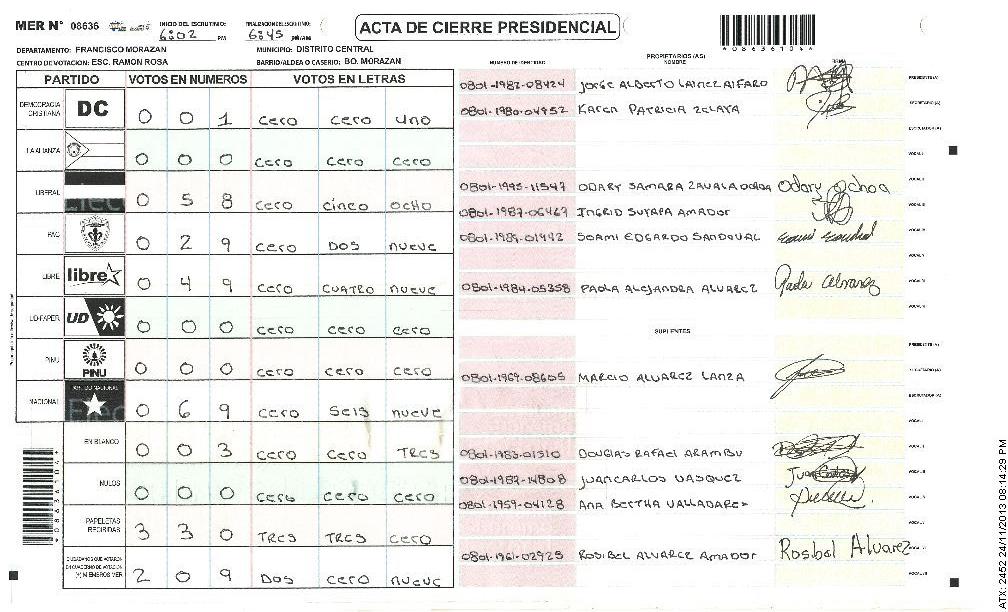 MER N° 08636 INICIO DEL ESCRUTINIO: 6:02 PM FINALIZACION DEL ESCRUTINIO: 6:45 PM/AM
ACTA DE CIERRE PRESIDENCIAL
*08636104*
DEPARTAMENTO: FRANCISCO MORAZAN MUNICIPIO: DISTRITO CENTRAL
CENTRO DE VOTACION: ESC. RAMON ROSA BARRIO/ALDEA O CASERIO: BO. MORAZAN
PARTIDO VOTOS EN NUMEROS VOTOS EN LETRAS
DEMOCRACIA CRISTIANA DC 0 0 1 cero cero uno
LA ALIANZA 0 0 0 cero cero cero
LIBERAL 0 5 8 cero cinco ocho
PAC 0 2 9 cero Dos nueve
LIBRE libre 0 4 9 cero cuatro nueve
UD-FAPER UD 0 0 0 cero cero cero
PINU PINU 0 0 0 cero cero cero
NACIONAL 0 6 9 cero seis nueve
EN BLANCO 0 0 3 cero cero Tres
NULOS 0 0 0 cero cero cero
PAPELETAS RECIBIDAS 3 3 0 Tres Tres cero
CIUDADANOS QUE VOTARON EN CUADERNO DE VOTACION (+) MIEMBROS MER 2 0 9 Dos cero nueve
NUMERO DE IDENTIDAD PROPIETARIOS (AS) NOMBRE FIRMA
0801-1982-08424 Jorge Alberto Lainez Alfaro PRESIDENTE (A)
0801-1980-04952 Karen Patricia Zelaya SECRETARIO (A)
ESCRUTADOR (A)
VOCAL I
0801-1993-11547 Odary Samara Zavala Ochoa Odary Ochoa VOCAL II
0801-1987-06467 Ingrid Suyapa Amador VOCAL III
0801-1989-01442 Soami Edgardo Sandoval VOCAL IV
VOCAL V
0801-1984-05358 Paola Alejandra Alvarez Paola Alvarez VOCAL VI
SUPLENTES
PRESIDENTE (A)
0801-1969-08605 Marcio Alvarez Lanza SECRETARIO (A)
ESCRUTADOR (A)
VOCAL I
0801-1983-01510 Douglas Rafael Arambu VOCAL II
0801-1982-14808 Juan Carlos Vasquez Juan VOCAL III
0801-1959-04128 Ana Bertha Valladares VOCAL IV
VOCAL V
0801-1961-02925 Rosibel Alvarez Amador Rosibel Alvarez VOCAL VI
ATX: 2452 24/11/2013 08:14:29 PM